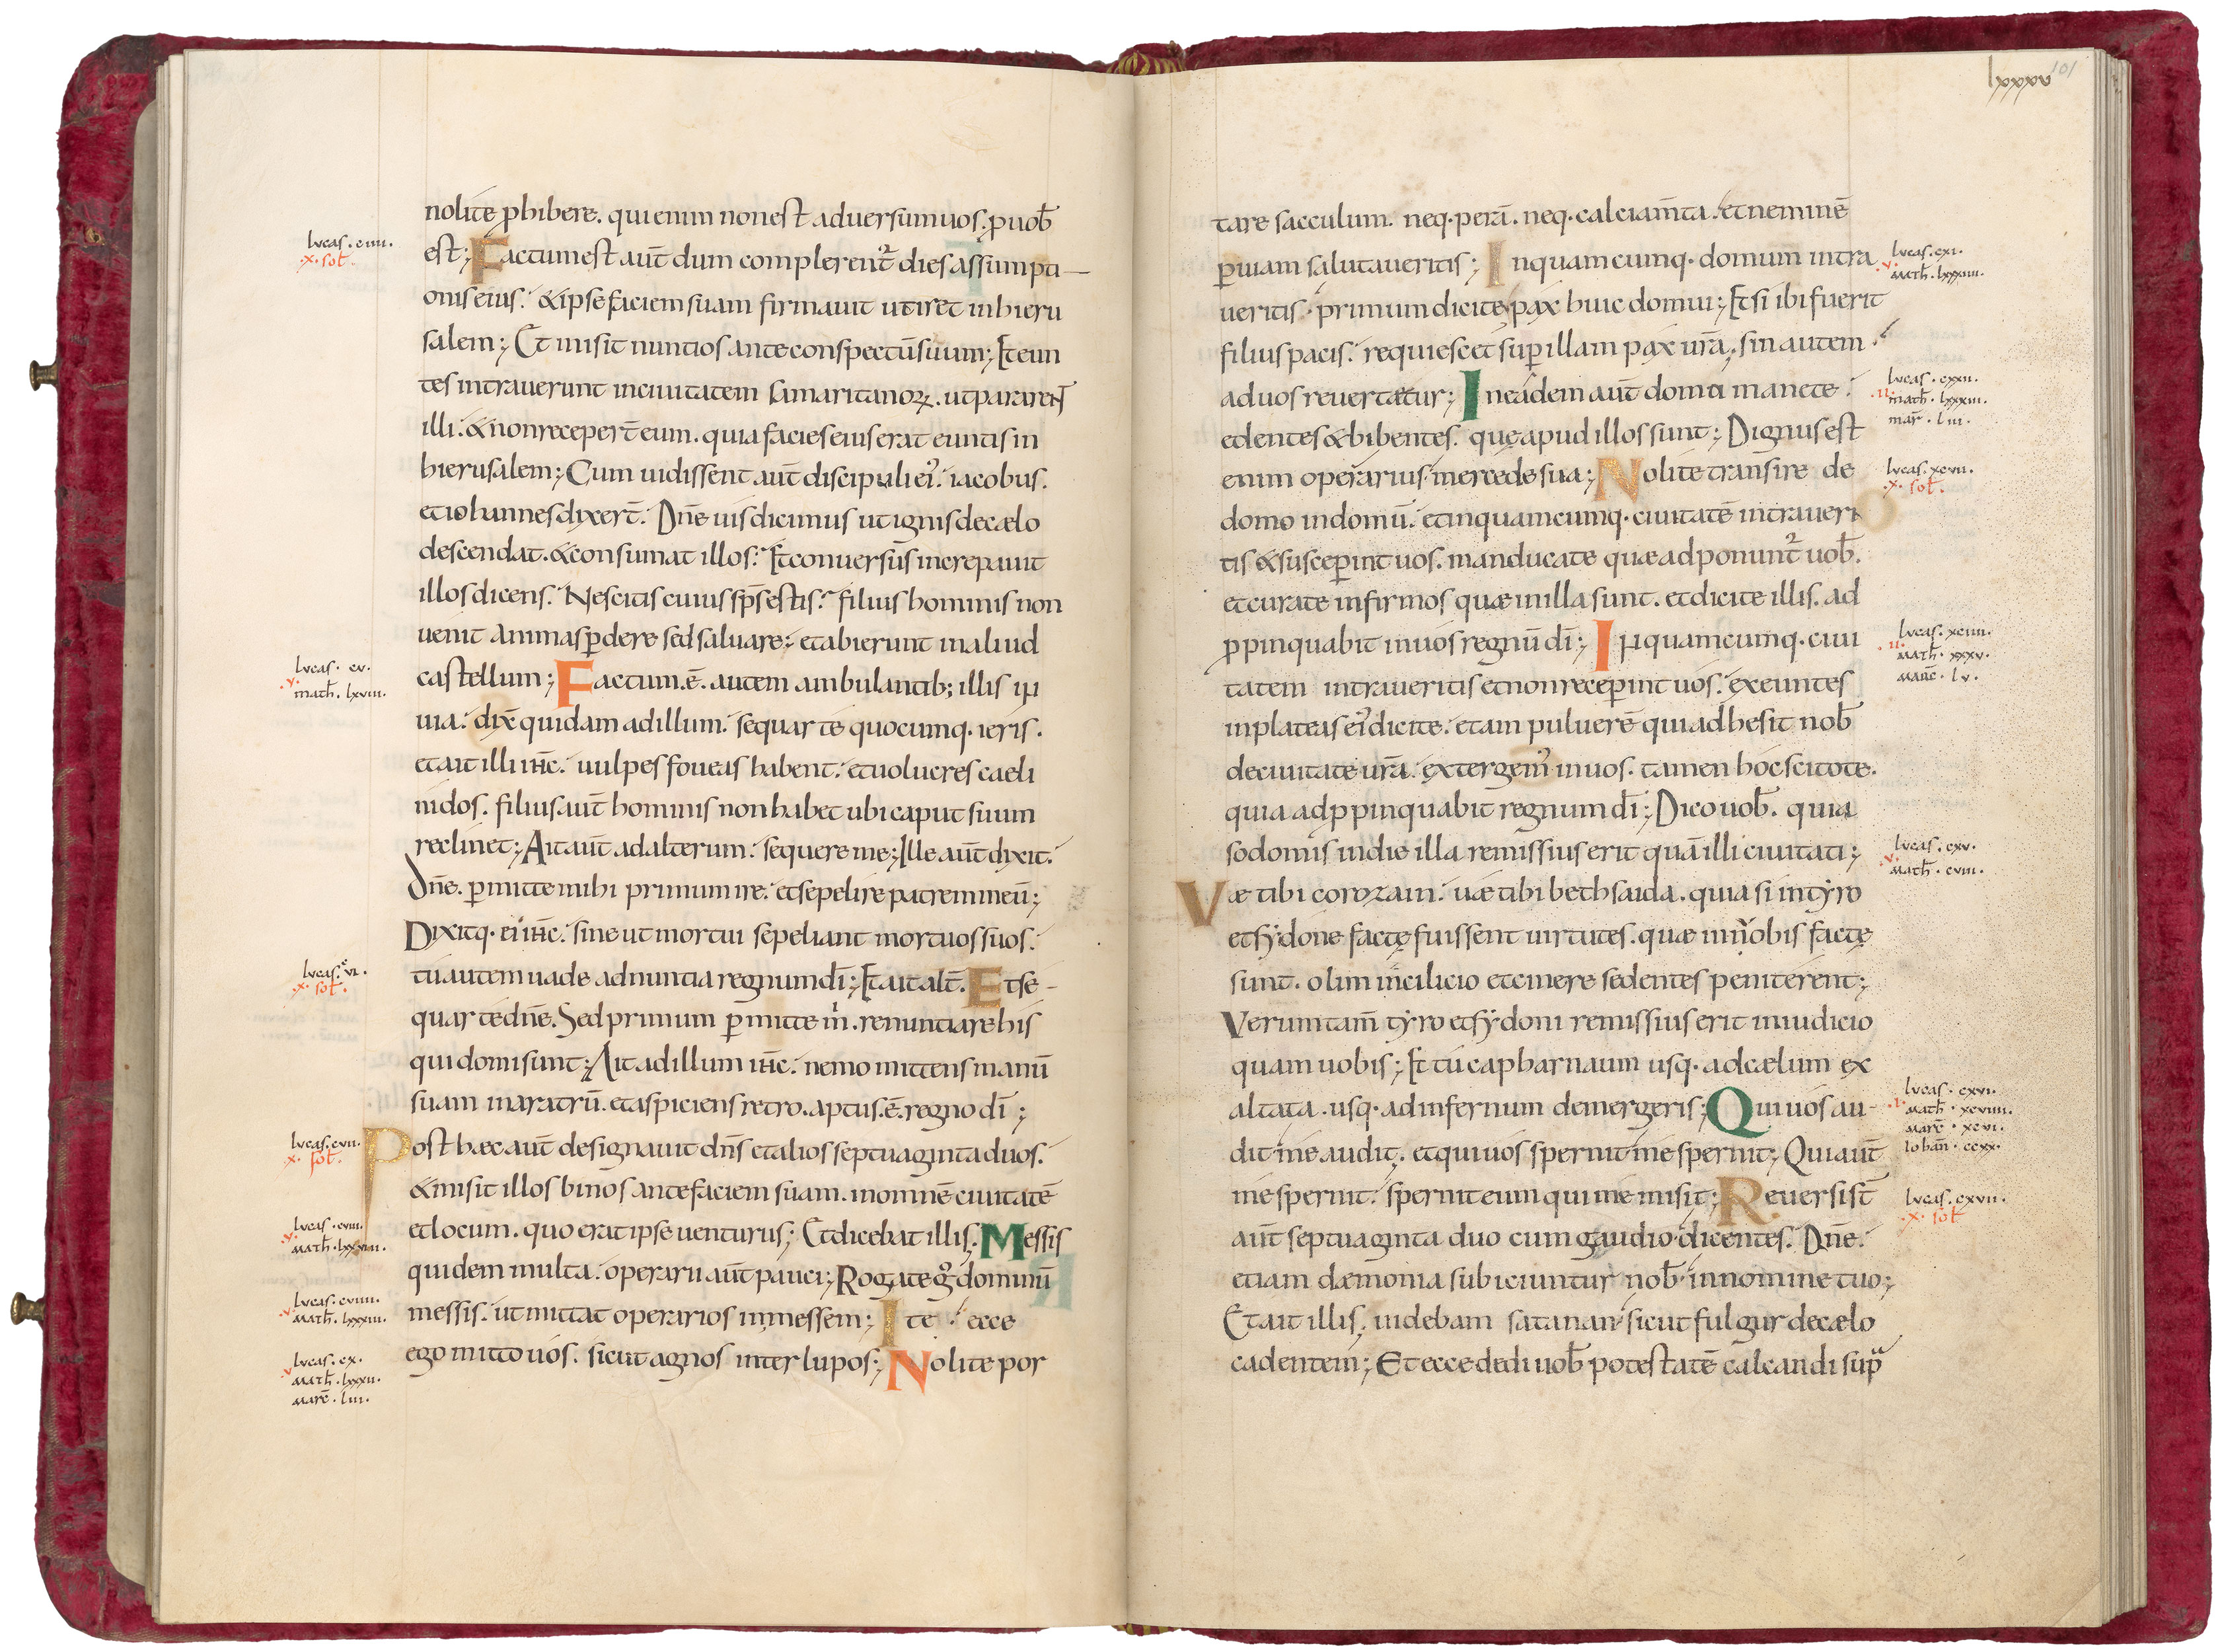 nolite ꝓhibere. qui enim non est aduersum uos. ꝓ uob̄
est; Factum est aut̄ dum complerent᷑ dies assumpti
onis eius. & ipse faciem suam firmauit ut iret in hieru
salem; Et misit nuntios ante conspectū suum; Et eun
tes intrauerunt in ciuitatem samaritanoꝝ. ut pararent
illi. & non receper̄t eum. quia facies eius erat euntis in
hierusalem; Cum uidissent aut̄ discipuli ei᾿. iacobus.
et iohannes dixer̄t. Dn̄e uis dicimus ut ignis de cælo
descendat. & consumat illos. Et conuersus increpauit
illos dicens. Nescitis cuius sp̄s estis. filius hominis non
uenit animas ꝑdere sed saluare; et abierunt in aliud
castellum; Factum. ē. autem ambulantib; illis in
uia. dix̄ quidam ad illum. sequar te quocumq· ieris.
et ait illi ih̄c. uulpes foueas habent. et uolucres caeli
nidos. filius aut̄ hominis non habet ubi caput suum
reclinet; Ait aut̄ ad alterum. sequere me; Ille aut̄ dixit.
dn̄e. ꝑmitte mihi primum ire. et sepelire patrem meū;
Dixitq· ei ih̄c. sine ut mortui sepeliant mortuos suos.
tu autem uade adnuntia regnum dī; Et ait alt̄. Et se-
quar te dn̄e. Sed primum ꝑmitte m̄. renuntiare his
qui domi sunt; Ait ad illum ih̄c. nemo mittens manū
suam in aratrū. et aspiciens retro. aptus. ē. regno dī;
Post hæc aut̄ designauit dn̄s et alios septuaginta duos.
& misit illos binos ante faciem suam. in omnē ciuitatē
et locum. quo erat ipse uenturus; Et dicebat illis. Messis
quidem multa. operarii aut̄ pauci; Rogate gͦ dominū
messis. ut mittat operarios in messem; Ite. ecce
ego mitto uos. sicut agnos inter lupos; Nolite por
lucas. ciiii.
·x· sol̄.
lucas. cv.
·v·
math̄. lxviii.
lucas. cvi.
·x· sol̄.
lucas. cvii.
·x· sol̄.
lucas. cviii.
·v·
math̄. lxxviiii.
lucas. cviiii.
·v·
math̄. lxxxiii.
lucas. cx.
·v·
math̄. lxxxii.
marc̄. liii.
lxxxv
101
tare sacculum. neq· perā. neq· calciam̄ta. et neminē
ꝑ uiam salutaueritis; In quamcumq· domum intra
ueritis. primum dicite pax huic domui; Et si ibi fuerit
filius pacis. requiescet suꝑ illam pax ur̄a. sin autem
ad uos reuertetur; In eadem aut̄ domu manete.
edentes & bibentes. quę apud illos sunt; Dignus est
enim operarius mercede sua; Nolite transire de
domo in domū. et in quamcumq· ciuitatē intraueri
tis & susceꝑint uos. manducate quæ adponunt᷑ uob̄.
et curate infirmos quæ in illa sunt. et dicite illis. ad
ꝓpinquabit in uos regnū dī; In quamcumq· ciui
tatem intraueritis et non receꝑint uos. exeuntes
in plateas ei᾿ dicite. etiam puluerē qui adhesit nob̄
de ciuitate ur̄a. extergem᾿ in uos. tamen hoc scitote.
quia adꝓpinquabit regnum dī; Dico uob̄. quia
sodomis in die illa remissius erit quā illi ciuitati;
Væ tibi corozain. uæ tibi bethsaida. quia si in tyro
et sydone factę fuissent uirtutes. quæ in uobis factę
sunt. olim in cilicio et cinere sedentes peniterent;
Verumtam̄ tyro et sydoni remissius erit in iudicio
quam uobis; Et tu capharnaum usq· ad cælum ex
altata. usq· ad infernum demergeris; Qui uos au-
dit me audit. et qui uos spernit me spernit; Qui aut̄
me spernit. spernit eum qui me misit; Reuersi st̄
aut̄ septuaginta duo cum gaudio dicentes. Dn̄e.
etiam dæmonia subiciuntur nob̄ in nomine tuo;
Et ait illis. uidebam satanan sicut fulgur de cælo
cadentem; Et ecce dedi uob̄ potestatē calcandi supᵃ
lucas. cxi.
·v·
math̄. lxxxiiii.
lucas. cxii.
·ii·
math̄. lxxxiii.
mar̄. liii.
lucas. xcvii.
·x· sol̄.
lucas. xciiii.
·ii·
math̄. xxxv.
marc̄. lv.
lucas. cxv.
·v·
math̄. cviii.
lucas. cxvi.
·i·
math̄. xcviiii.
marc̄. xcvi.
iohan̄. ccxx.
lucas. cxvii.
·x· sol̄